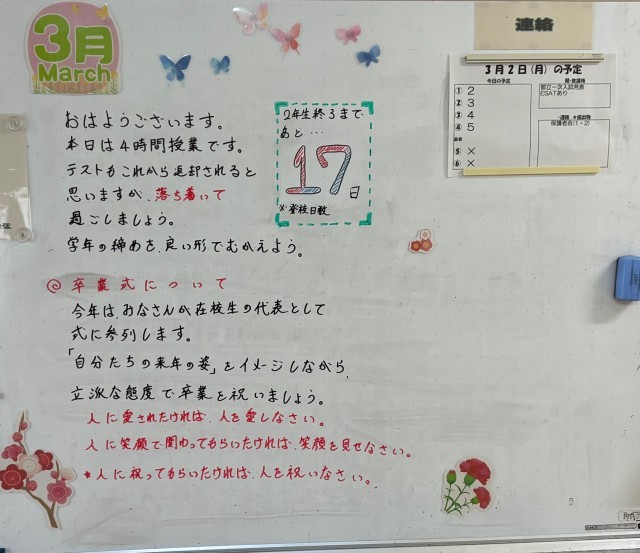 3月
March
連絡
3月2日(月)の予定
今日の予定
① 2
② 3
③ 4
④ 5
⑤ ×
⑥ ×
都立一次入試発表
ESATあり
保護者会(1・2)
おはようございます。
本日は4時間授業です。
テストもこれから返却されると
思いますが、落ち着いて
過ごしましょう。
学年の締めを、良い形でむかえよう。
2年生終了まで
あと…
17日
※登校日数
◎卒業式について
今年は、みなさんが在校生の代表として
式に参列します。
「自分たちの来年の姿」をイメージしながら、
立派な態度で卒業を祝いましょう。
人に愛されたければ、人を愛しなさい。
人に笑顔で関わってもらいたければ、笑顔を見せなさい。
*人に祝ってもらいたければ、人を祝いなさい。